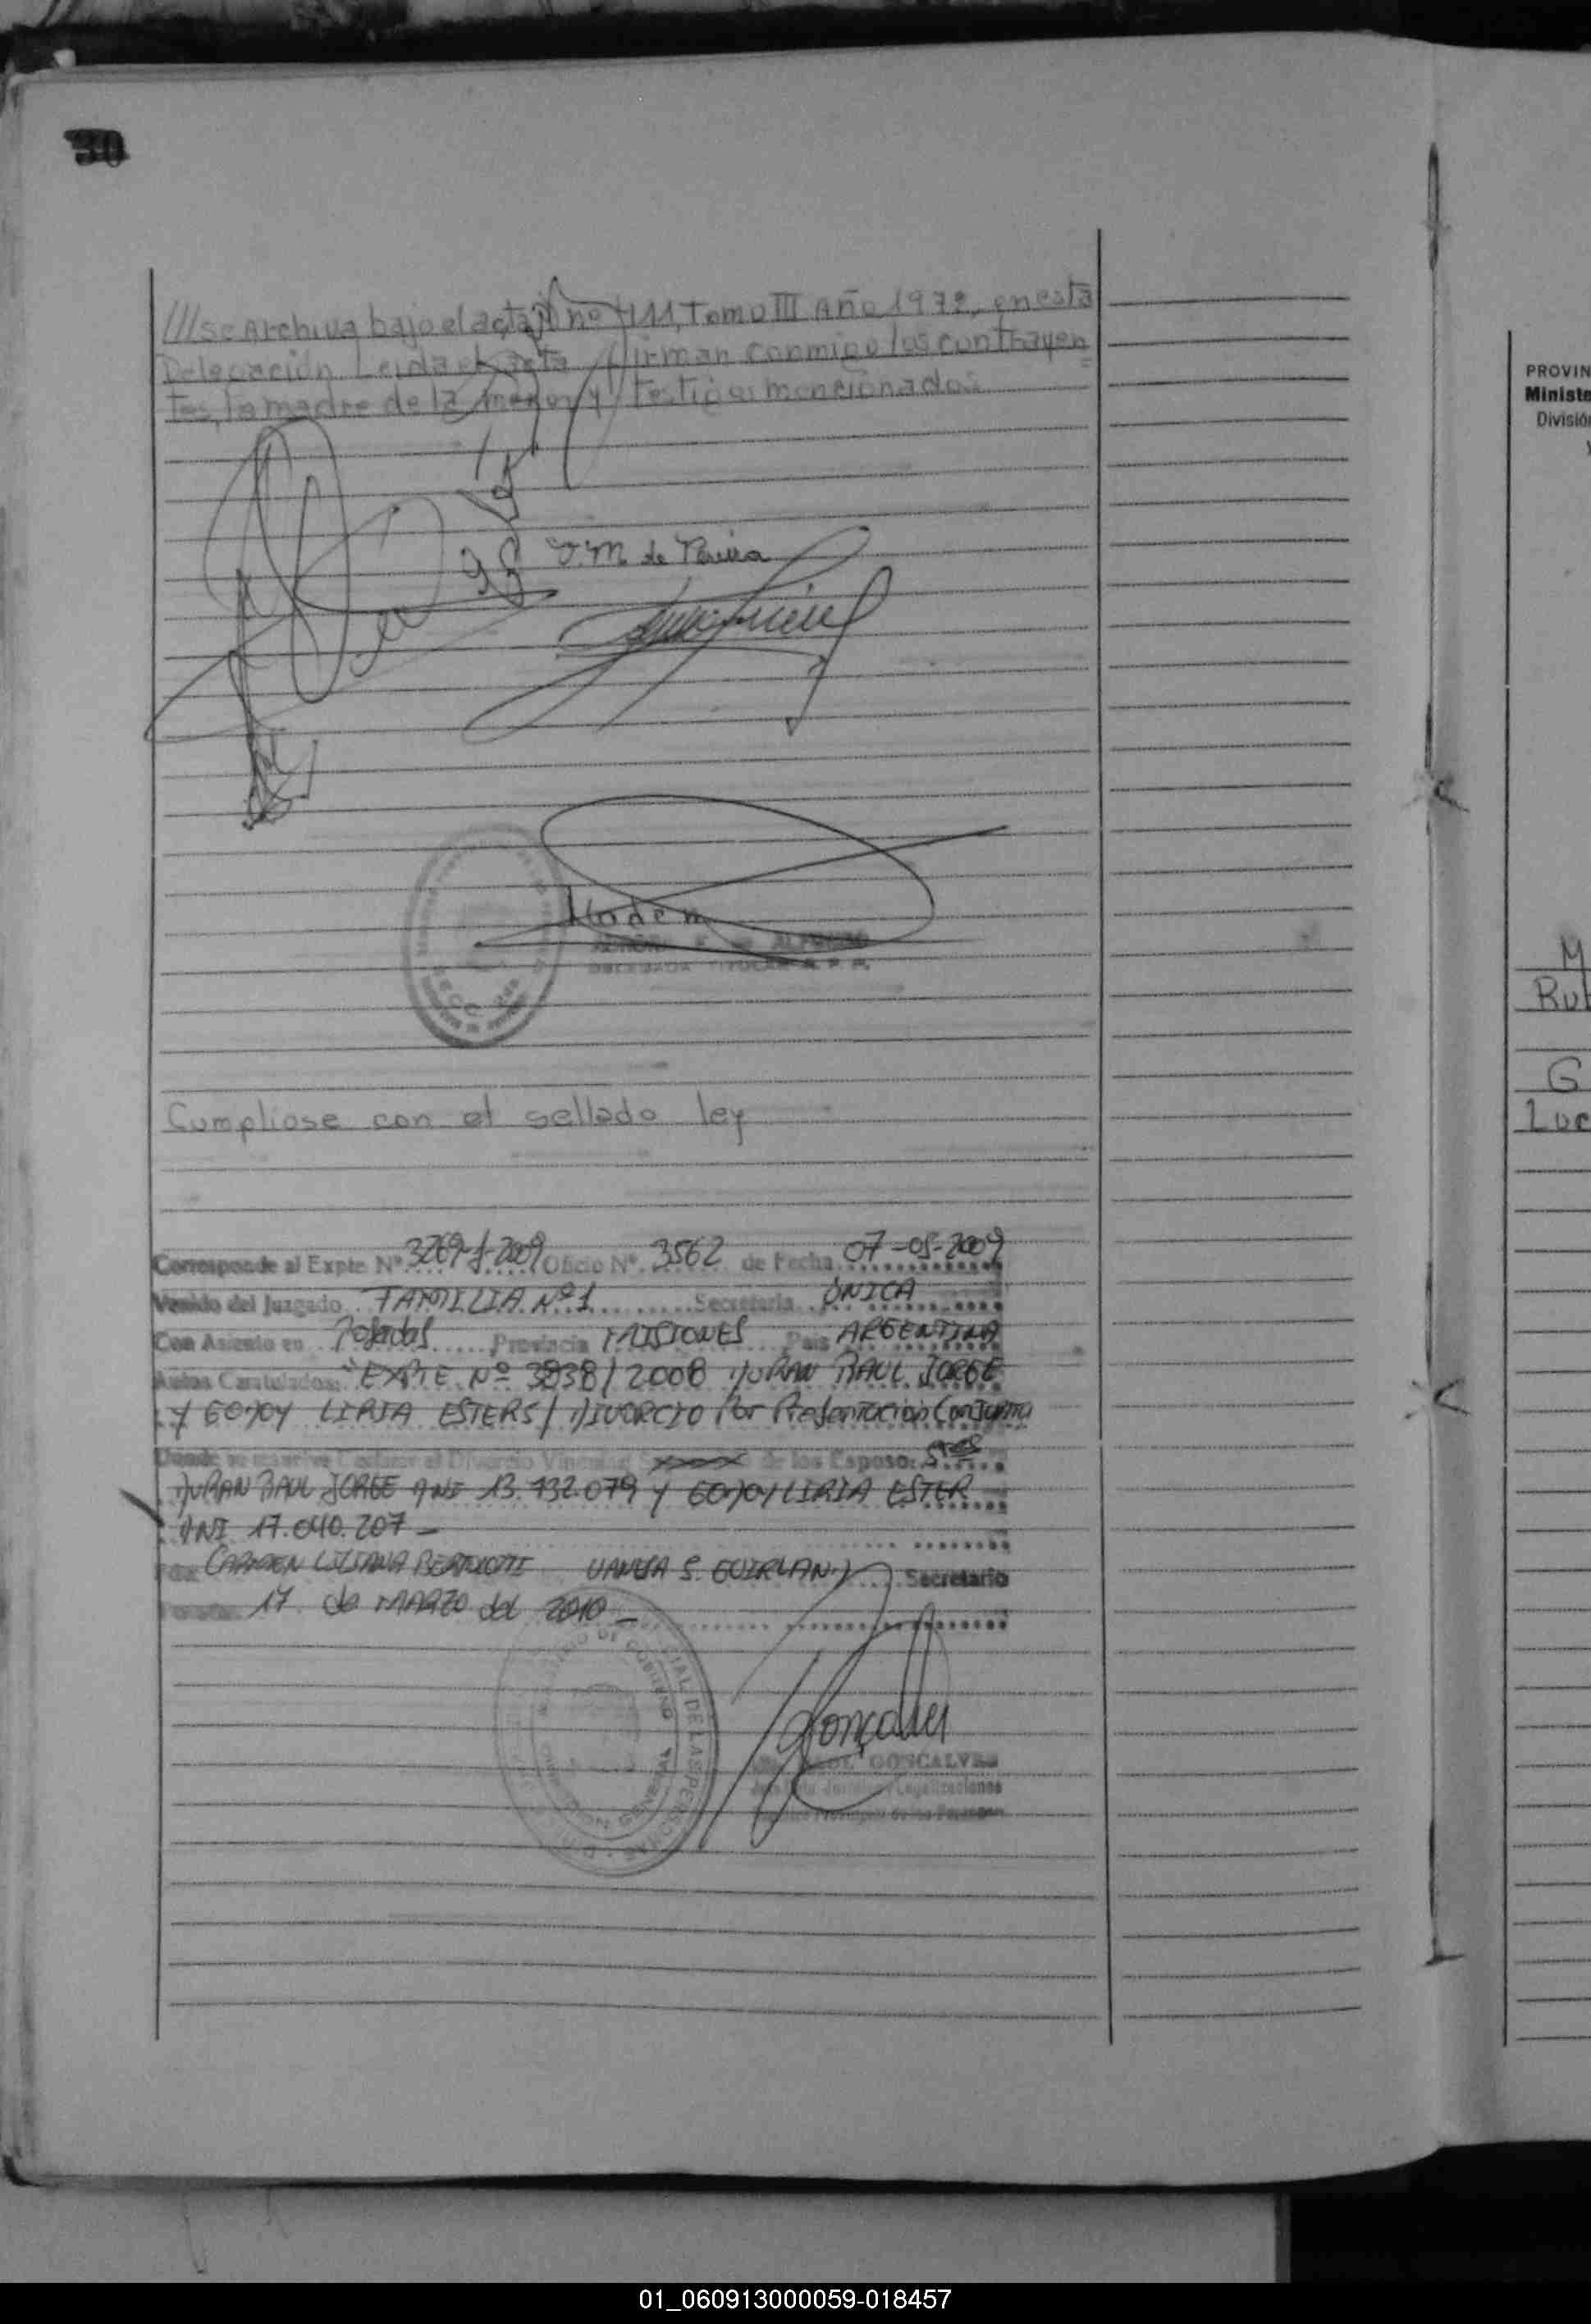 30
///se Archiva bajo el acta nº 411, Tomo III Año 1972, en esta
Delegación. Leída el acta, firman conmigo los contrayen=
tes, la madre de la menor y testigos mencionados.
J. M. de
ALFONSO
DELEGADA TITULAR R. P. P.
Cumpliose con el sellado ley
Corresponde al Expte Nº 3269-J-2009 Oficio Nº 3562 de Fecha 07-05-2009
Venido del Juzgado FAMILIA Nº 1 Secretaria ÚNICA
Con Asiento en Posadas Provincia MISIONES Pais ARGENTINA
Autos Caratulados: "EXPTE Nº 3838/2008 DURAN RAUL JORGE
Y GODOY LIRIA ESTER S/ DIVORCIO Por Presentación Conjunta
Donde se resuelve Declarar el Divorcio Vincular de los Esposos
DURAN RAUL JORGE DNI 13.732.079 Y GODOY LIRIA ESTER
DNI 17.040.207 -
Fdo: CARMEN LILIANA Secretario
Posadas 17 de MARZO del 2010 -
GONCALVES
PROVIN
Ministe
División
M
Rub
G
Luc
01_060913000059-018457